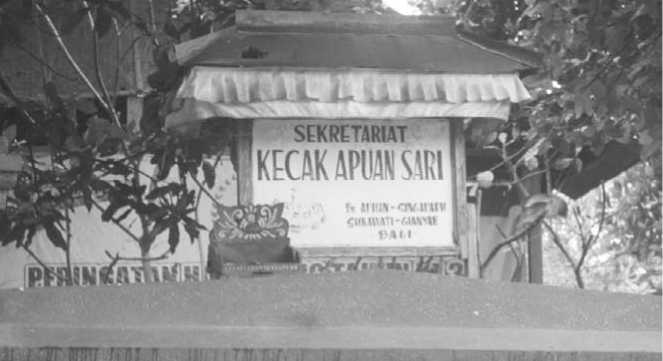 SEKRETARIAT
KECAK APUAN SARI
Br. APUAN - SINGAPADU
SUKAWATI - GIANYAR
BALI
PERINGATAN H